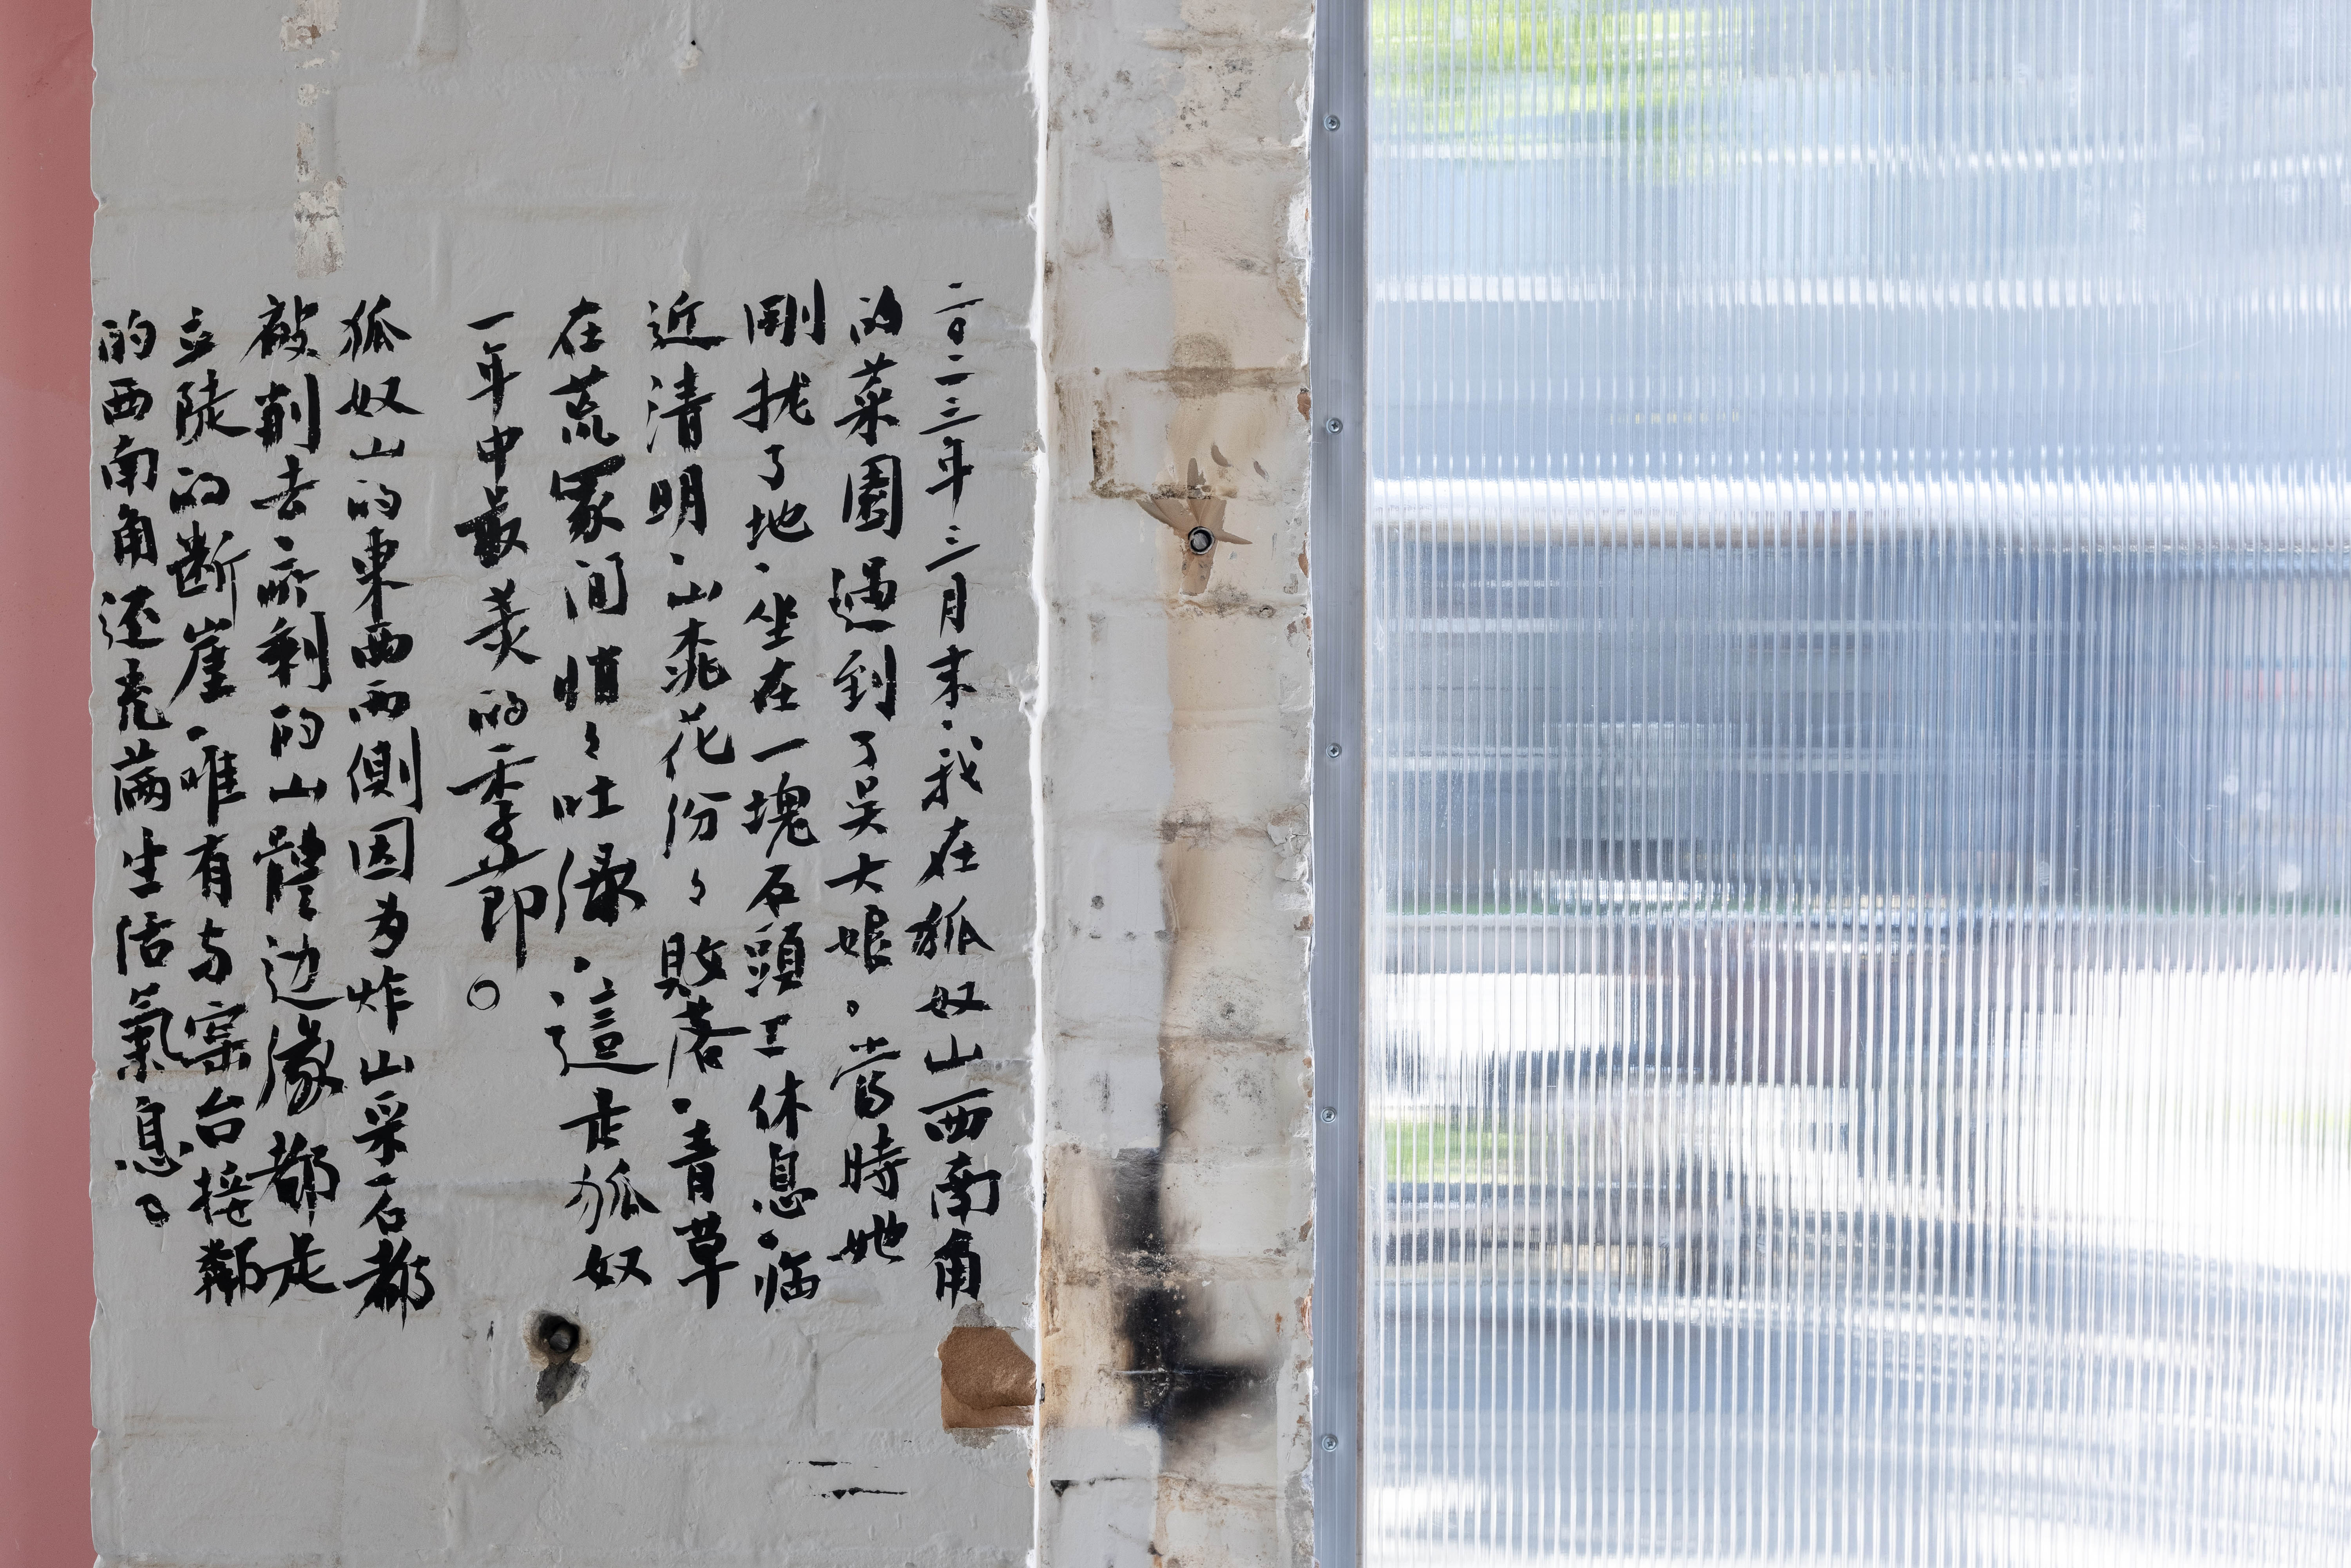 二〇二三年三月末、我在狐奴山西南角
的菜園遇到了吴大娘。當時她
剛拢了地、坐在一塊石頭上休息、临
近清明、山桃花份々敗落、青草
在荒冢间悄々吐绿、這是狐奴
一年中最美的季節。
狐奴山的東西两側因为炸山采石都
被削去、所剩的山體边缘都是
立陡的断崖、唯有与宗台接鄰
的西南角还充满生活氣息。